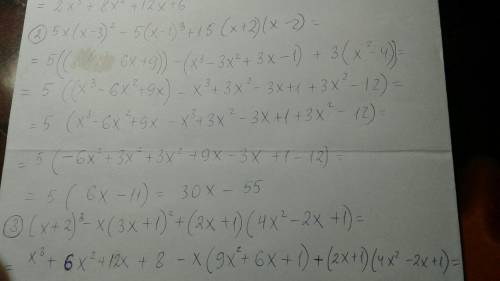 = 2x³ + 8x² + 12x + 6
② 5x(x-3)² - 5(x-1)³ + 15(x+2)(x-2) =
= 5(( 6x+9)) - (x³ - 3x² + 3x - 1) + 3(x² - 4) =
= 5((x³ - 6x² + 9x) - x³ + 3x² - 3x + 1 + 3x² - 12) =
= 5(x³ - 6x² + 9x - x³ + 3x² - 3x + 1 + 3x² - 12) =
= 5(-6x² + 3x² + 3x² + 9x - 3x + 1 - 12) =
= 5(6x - 11) = 30x - 55
③ (x+2)³ - x(3x+1)² + (2x+1)(4x² - 2x + 1) =
= x³ + 6x² + 12x + 8 - x(9x² + 6x + 1) + (2x+1)(4x² - 2x + 1) =